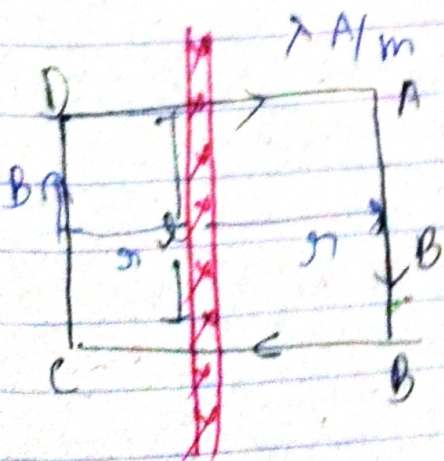 λ A/m
D
A
B
l
r
r
B
C
B